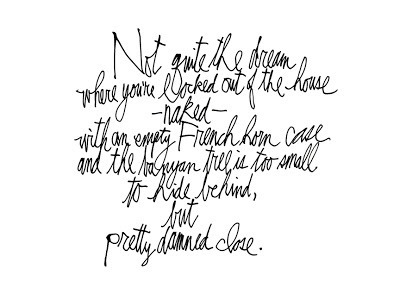 Not quite the dream
where you're locked out of the house
-naked-
with an empty French horn case
and the banyan tree is too small
to hide behind,
but
pretty damned close.